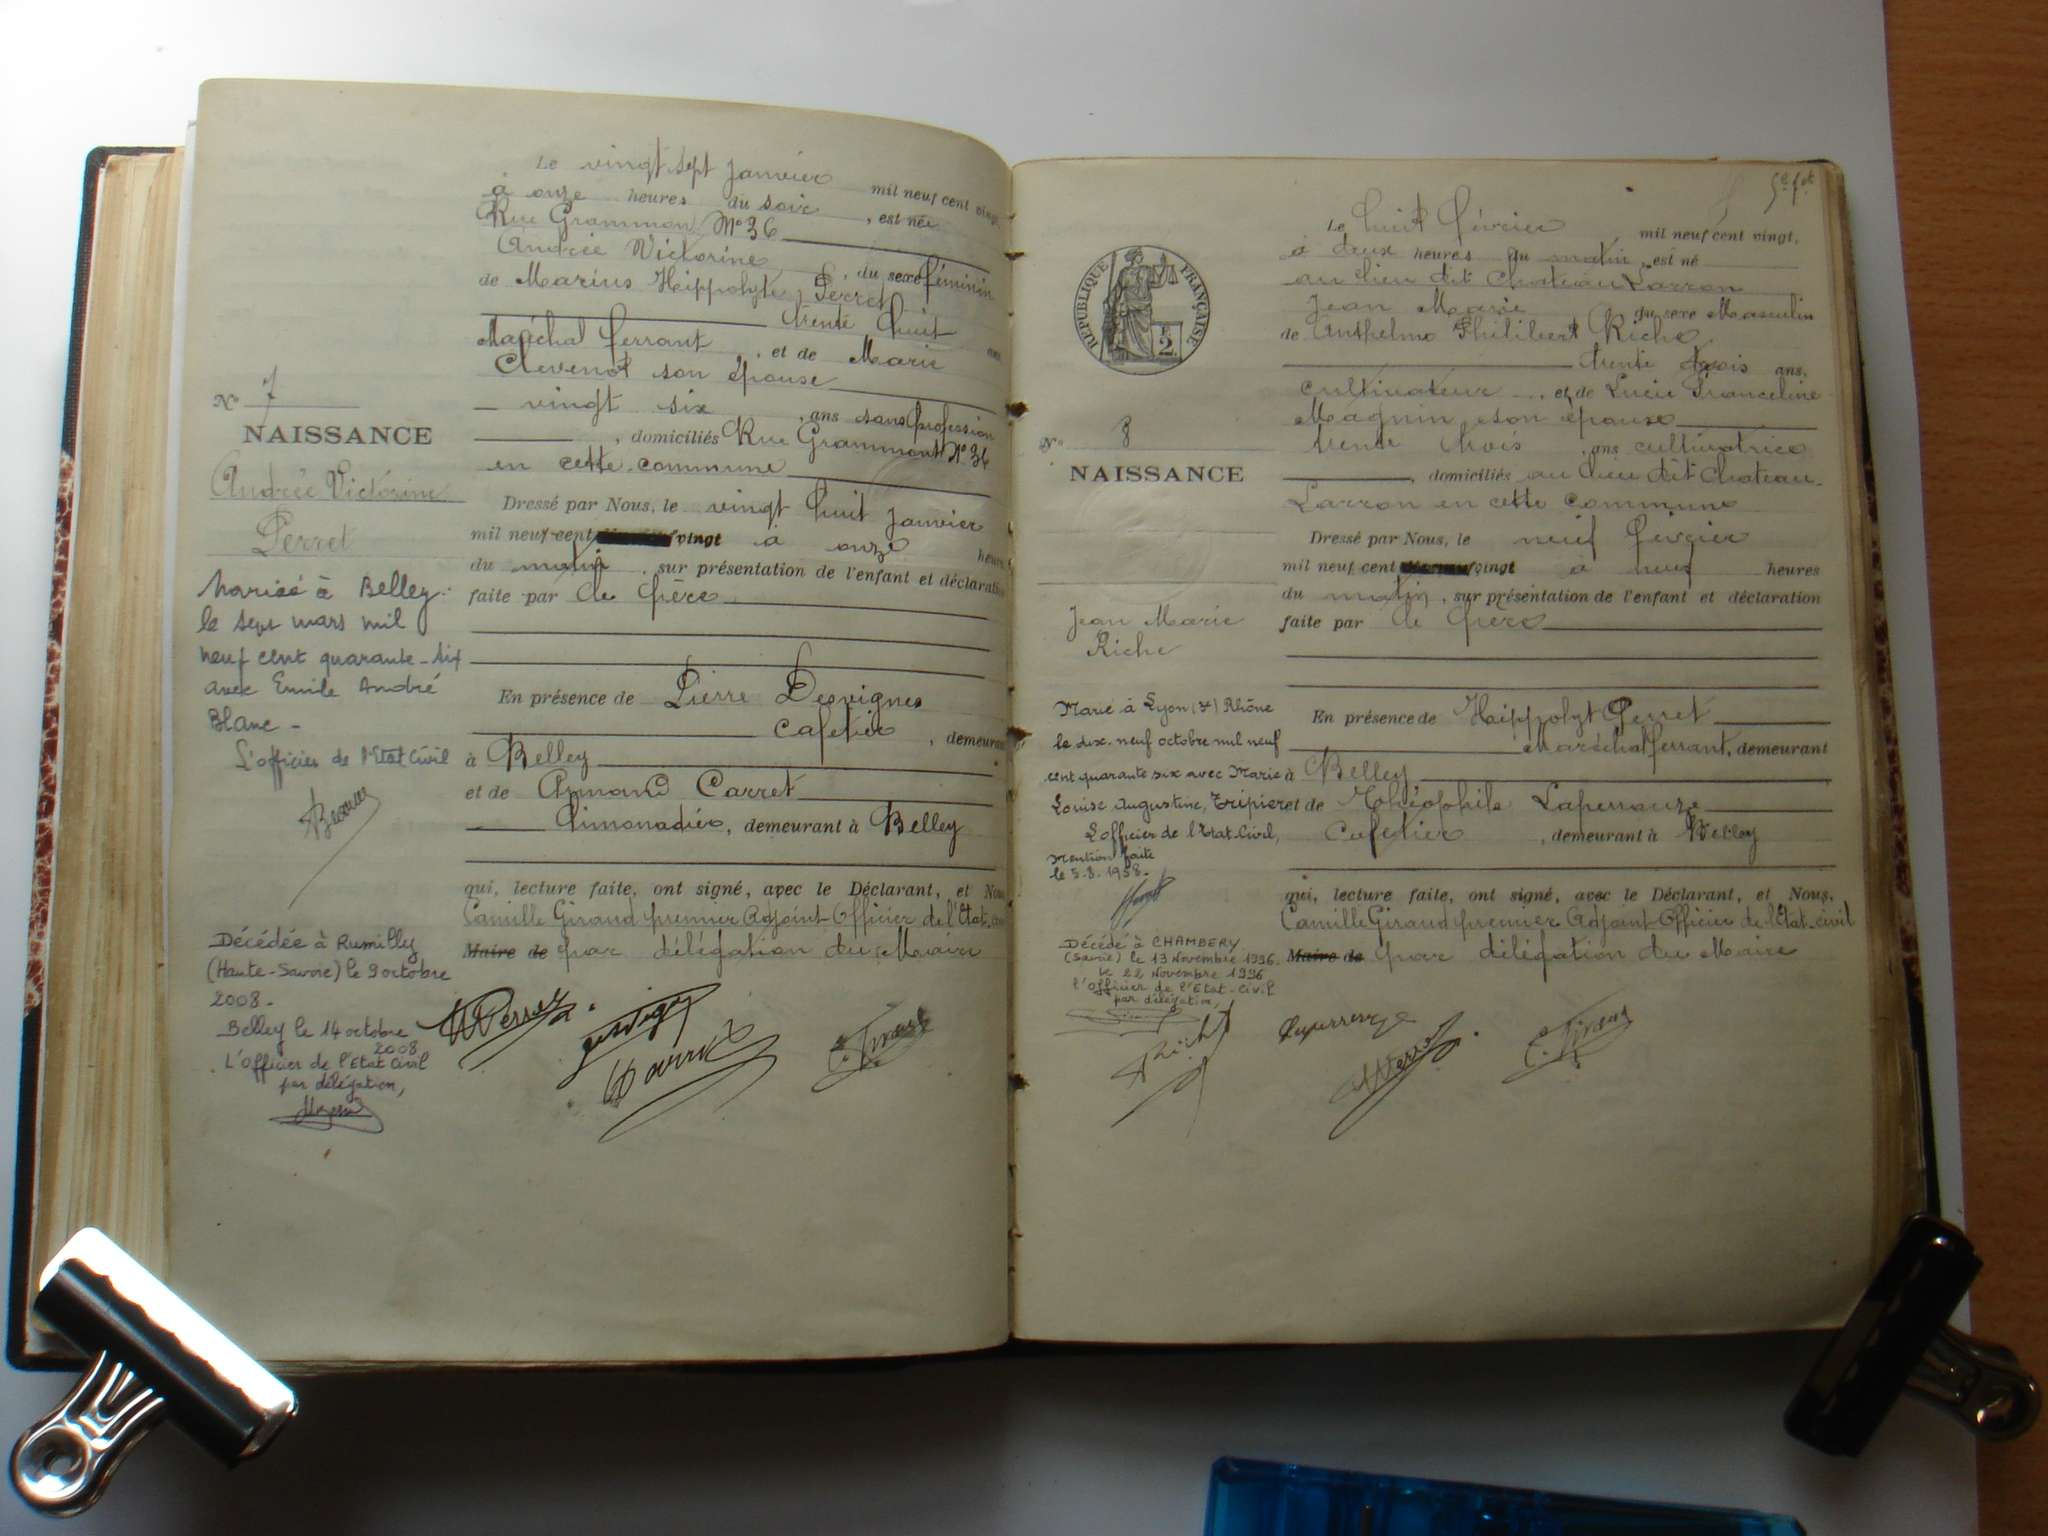 Le vingt sept Janvier mil neuf cent vingt,
à onze heures du soir, est née
Rue Grammon N° 36
Andrée Victorine, du sexe féminin
de Marius Hippolyte Perret
trente huit ans
Maréchal ferrant, et de Marie
Clevenot son épouse
vingt six, ans sans profession
, domiciliés Rue Grammont N° 36
en cette commune
Dressé par Nous, le vingt huit Janvier
mil neuf cent vingt à onze heures
du matin, sur présentation de l'enfant et déclaration
faite par le père
En présence de Pierre Desvignes
cafetier, demeurant
à Belley
et de Armand Carret
Limonadier, demeurant à Belley
qui, lecture faite, ont signé, avec le Déclarant, et Nous
Camille Giraud premier Adjoint-Officier de l'Etat-civil
Maire de par délégation du Maire
N° 7
NAISSANCE
Andrée Victorine
Perret
Mariée à Belley
le sept mars mil
neuf cent quarante-six
avec Emile André
Blanc -
L'officier de l'Etat Civil
Décédée à Rumilly
(Haute-Savoie) le 9 octobre
2008.
Belley le 14 octobre
2008
L'Officier de l'Etat Civil
par délégation,
Le huit février mil neuf cent vingt,
à deux heures du matin, est né
au lieu dit Chateau Larron
Jean Marie du sexe Masculin
de Anthelme Philibert Riche
trente trois ans,
cultivateur, et de Lucie Franceline
Magnin son épouse
trente trois, ans cultivatrice
, domiciliés au lieu dit Chateau-
Larron en cette commune
Dressé par Nous, le neuf février
mil neuf cent vingt à neuf heures
du matin, sur présentation de l'enfant et déclaration
faite par le père
En présence de Hippolyt Perret
Maréchal ferrant, demeurant
à Belley
et de Théophile Laperrouze
Cafetier, demeurant à Belley
qui, lecture faite, ont signé, avec le Déclarant, et Nous,
Camille Giraud premier Adjoint-Officier de l'Etat-civil
Maire de par délégation du Maire
RÉPUBLIQUE FRANÇAISE
2
N° 8
NAISSANCE
Jean Marie
Riche
Marié à Lyon (7) Rhône
le dix-neuf octobre mil neuf
cent quarante six avec Marie
Louise Augustine, Tripier
L'officier de l'Etat-Civil,
Mention faite
le 5.8.1958.
Décédé à CHAMBERY
(Savoie) le 13 Novembre 1996.
le 22 Novembre 1996
l'Officier de l'Etat-Civil
par délégation,